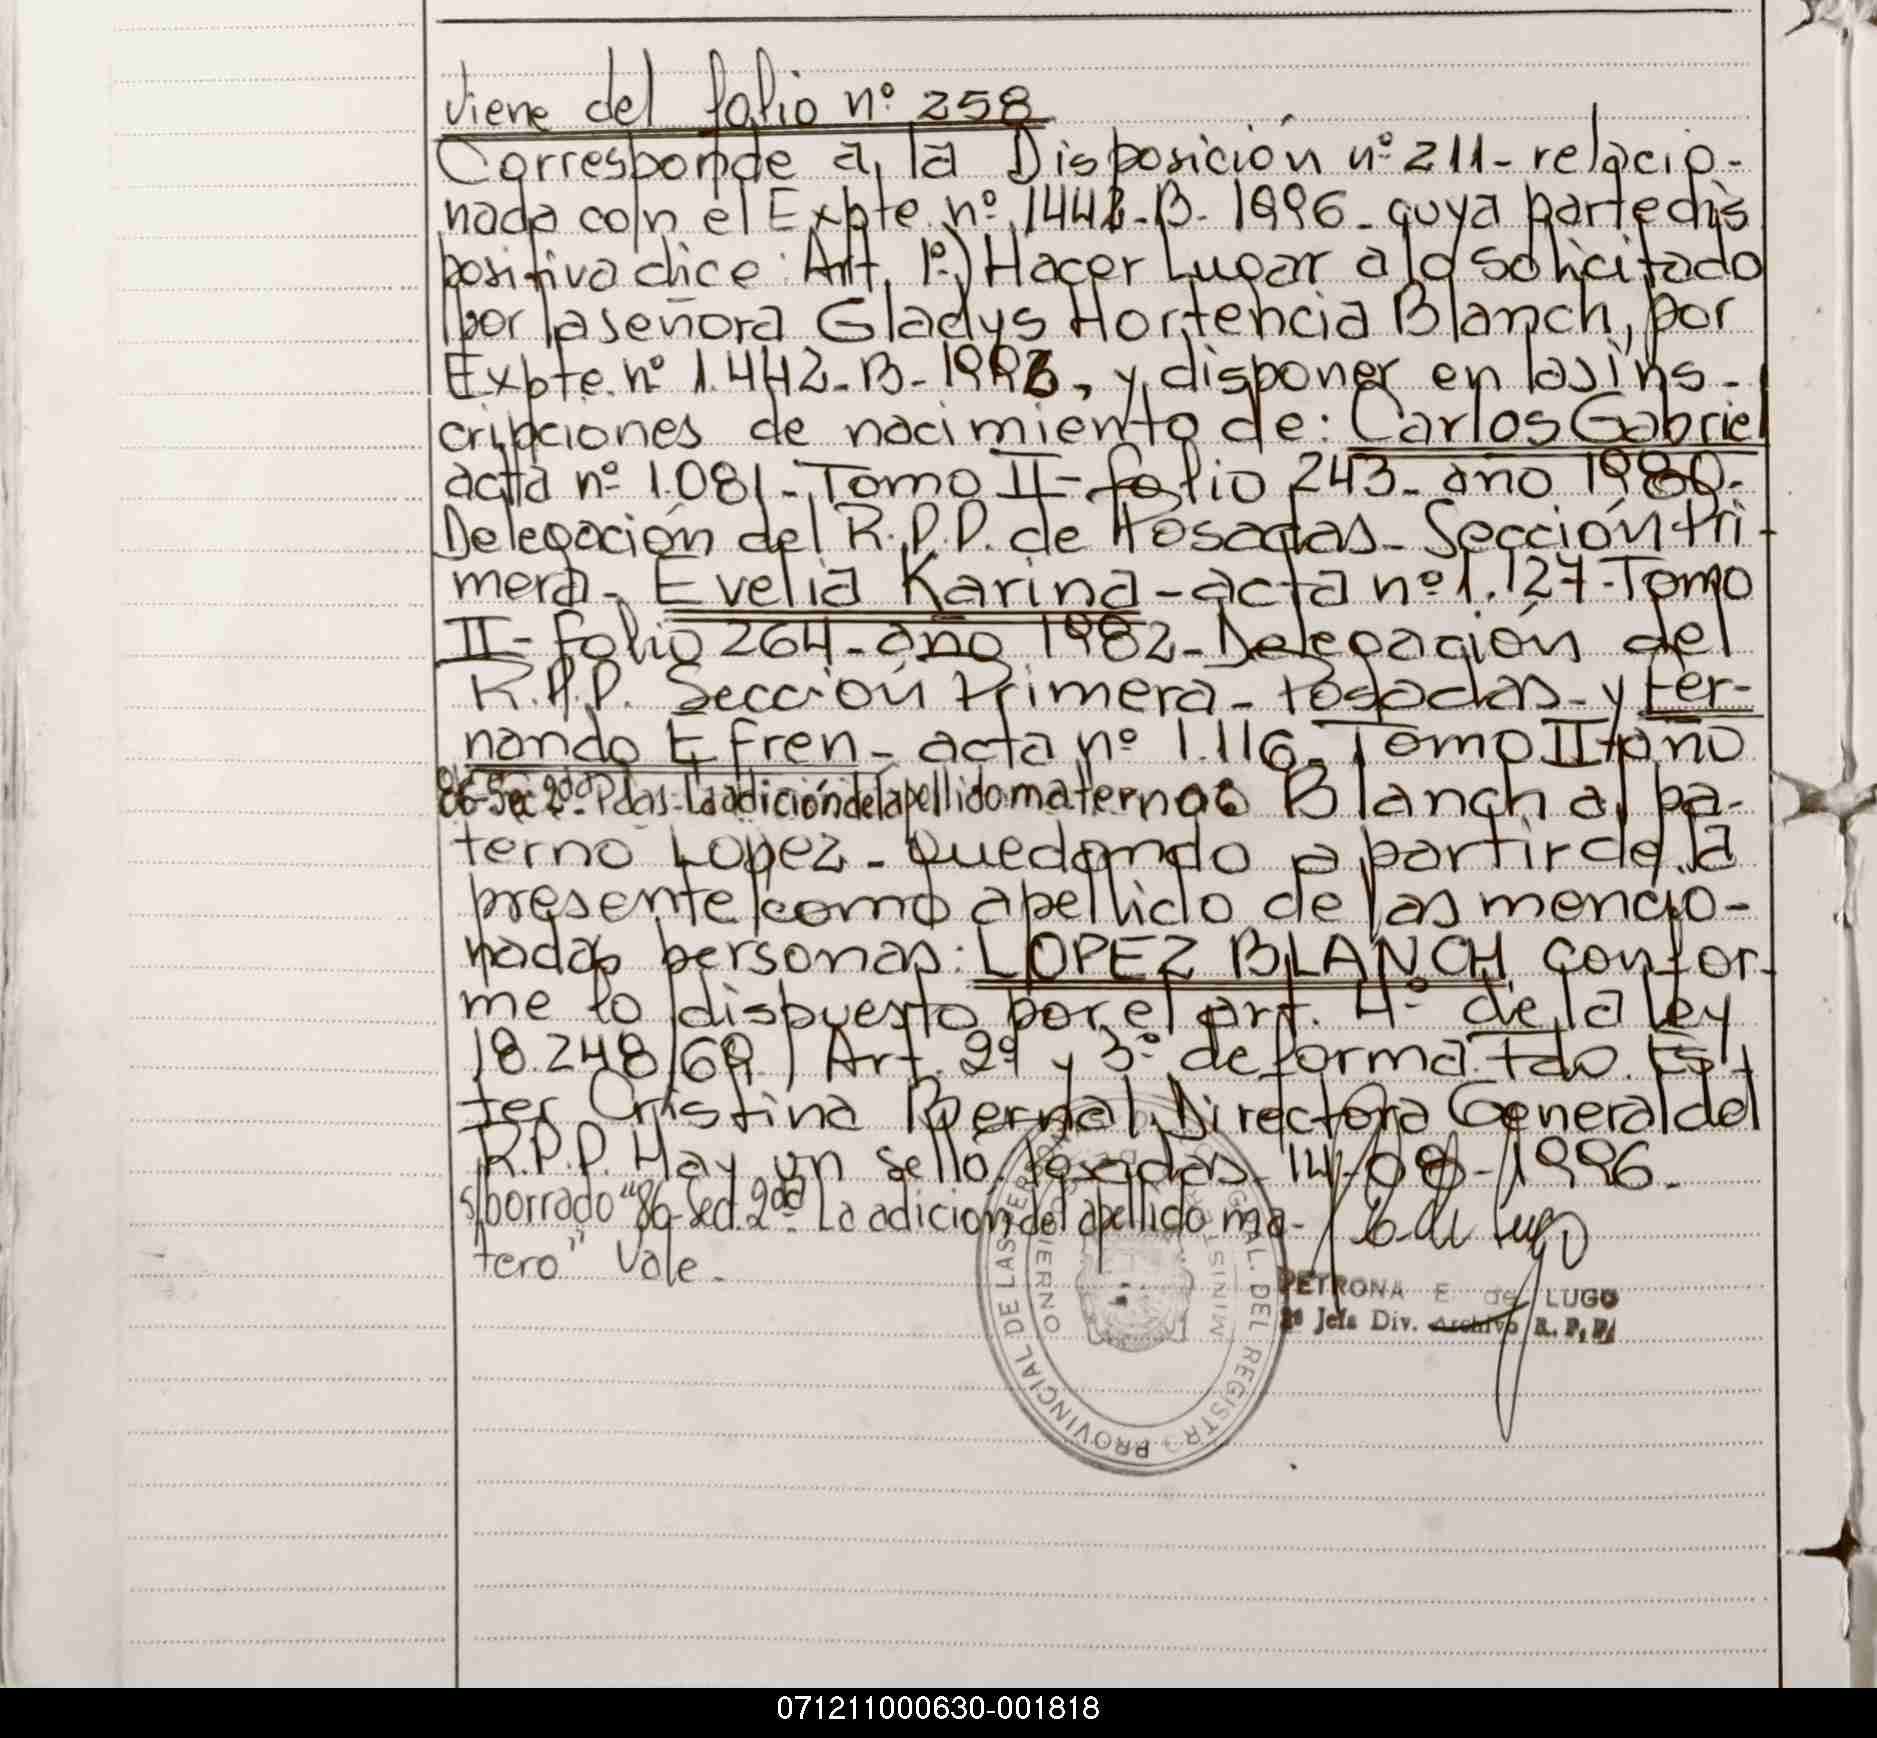 Viene del folio nº 258
Corresponde a la Disposición nº 211- relacio-
nada con el Expte. nº 1442-B-1996- cuya parte dis
positiva dice: Art. 1º) Hacer Lugar a lo solicitado
por la señora Gladys Hortencia Blanch, por
Expte. nº 1.442-B-1996, y disponer en las ins-
cripciones de nacimiento de: Carlos Gabriel
acta nº 1.081- Tomo II- folio 243- año 1980-
Delegación del R.P.P. de Posadas- Sección Pri-
mera- Evelia Karina- acta nº 1.127- Tomo
II- Folio 264- año 1982- Delegación del
R.P.P. Sección Primera- Posadas- y Fer-
nando Efren- acta nº 1.116- Tomo II- año
86-Sec 2da- Pdas- La adición del apellido materno Blanch al pa-
terno Lopez- Quedando a partir de la
presente como apellido de las mencio-
nadas personas: LOPEZ BLANCH confor-
me lo dispuesto por el art. 4º de la ley
18.248/69) Art. 2º y 3º de forma. Fdo. Es-
ter Cristina Bernal. Directora General del
R.P.P. Hay un sello. Posadas 14-08-1996.
s/borrado "86-Sed. 2da La adicion del apellido ma-
tero" Vale.
PETRONA E de LUGO
2ª Jefa Div. Archivo R. P. P.
PROVINCIAL DE LAS PERSONAS
GRAL. DEL REGISTRO
MINIST
071211000630-001818